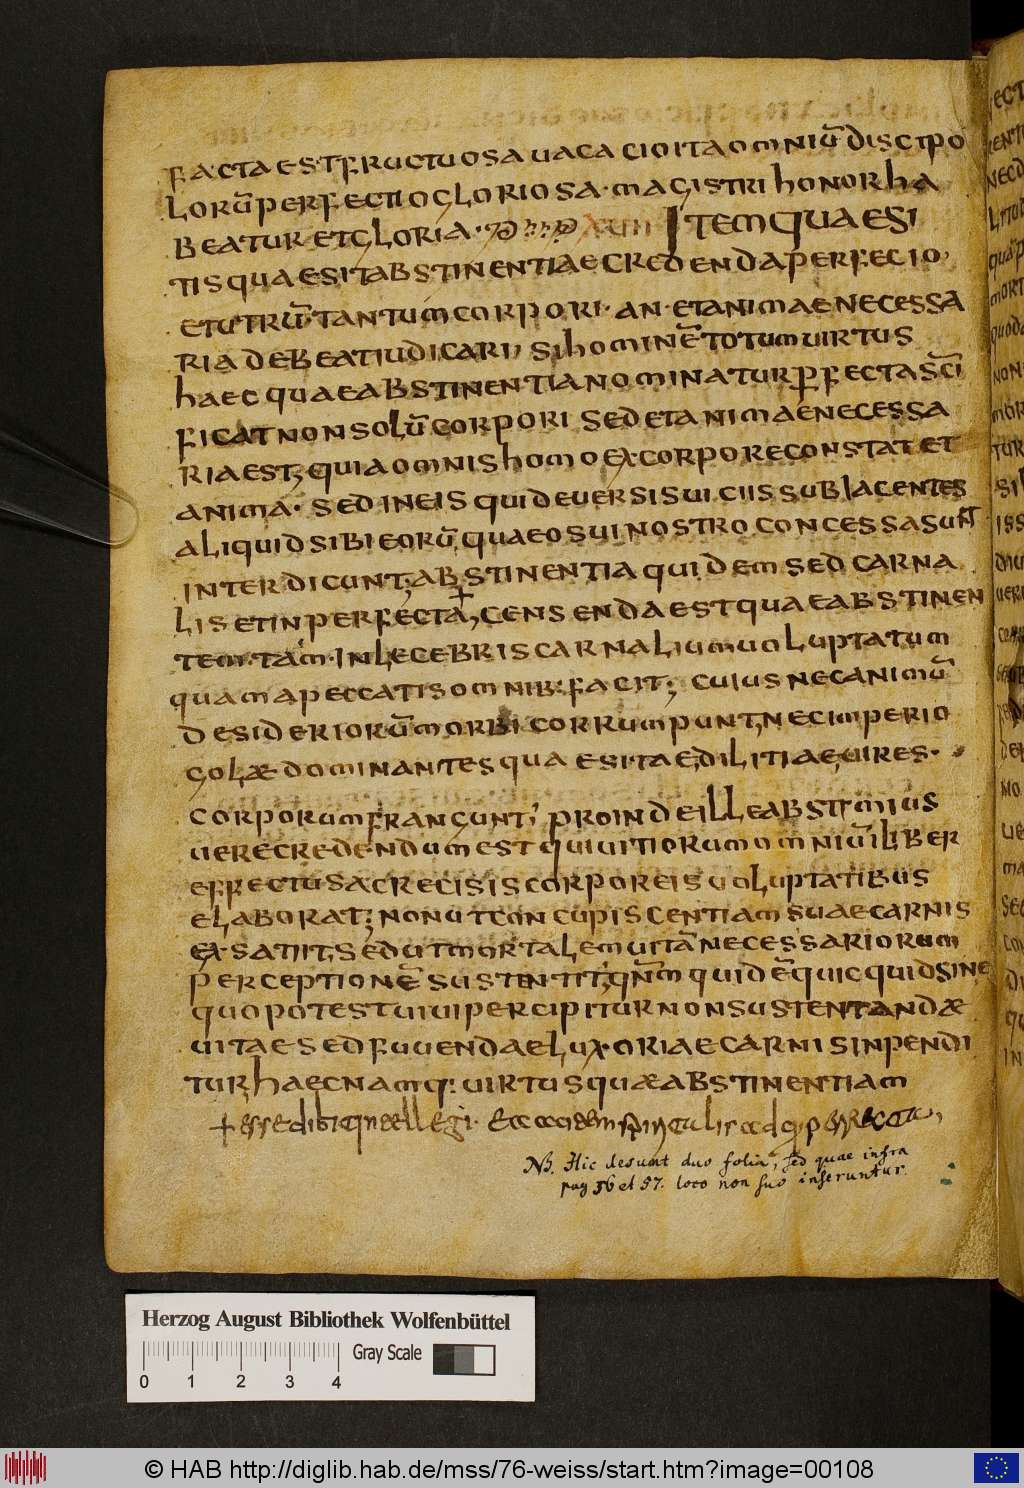 FACTA EST FRUCTUOSA UACACIO ITA OMNIŪ DISCIPO
LORŪ PERFECTIO GLORIOSA· MAGISTRI HONOR HA
BEATUR ET GLORIA· XUII ITEM QUAESI
TIS QUAE SIT ABSTINENTIA CREDENDA PERFECIO
ET UTRŪ TANTUM CORPORI· AN· ET ANIMAE NECESSA
RIA DEBEAT IUDICARI, SI HOMINĒ TOTUM UIRTUS
HAEC QUAE ABSTINENTIA NOMINATUR PFECTA SCĪ
FICAT NON SOLŪ CORPORI SED ET ANIMAE NECESSA
RIA EST; QUIA OMNIS HOMO EX CORPORE CONSTAT ET
ANIMA· SED IN EIS QUI DEUERSIS UICIIS SUBIACENTES
ALIQUID SIBI EORŪ, QUAE OSUI NOSTRO CONCESSA SUNT
INTERDICUNT; ABSTINENTIA QUIDEM SED CARNA
LIS ET INPERFECTA, CENSENDA EST QUAE ABSTINEN
TEM· TAM· INLECEBRIS CARNALIUM UOLUPTATUM
QUAM A PECCATIS OMNIB: FACIT; CUIUS NEC ANIMŪ
DESIDERIORŪ MORBI CORRUMPUNT, NEC IMPERIO
GOLÆ DOMINANTES QUAESITAE DILITIAE, UIRES·
CORPORUM FRANGUNT; PROINDE ILLE ABSTIMIUS
UERE CREDENDUM EST QUI UITIORUM OMNIŪ LIBER
EFFECTUS ACRECISIS CORPOREIS UOLUPTATIBUS
ELABORAT; NON UT CONCUPISCENTIAM SUAE CARNIS
EXSATIIT, SED UT MORTALEM UITĀ NECESSARIORUM
PERCEPTIONĒ SUSTENTIT, QNM QUIDĒ QUICQUID SINE
QUO POTEST UIUI PERCIPITUR NON SUSTENTANDÆ
UITAE SED FUUENDAE LUXORIAE CARNIS INPENDI
TUR, HAEC NAMQ: UIRTUS QUÆ ABSTINENTIAM
NB. Hic desunt duo folia, sed quae infra
pag 56 et 57. loco non suo inseruntur.
Herzog August Bibliothek Wolfenbüttel
Gray Scale
0 1 2 3 4
© HAB http://diglib.hab.de/mss/76-weiss/start.htm?image=00108